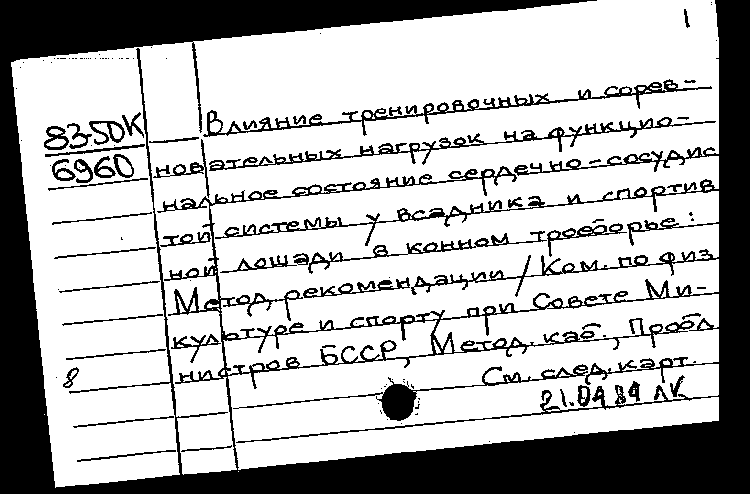 1
83-50К
6960
Влияние тренировочных и сорев-
новательных нагрузок на функцио-
нальное состояние сердечно-сосудис
той системы у всадника и спортив
ной лошади в конном троеборье:
Метод. рекомендации / Ком. по физ
культуре и спорту при Совете Ми-
нистров БССР, Метод. каб., Пробл
8
См. след. карт.
21.04.84 ЛК